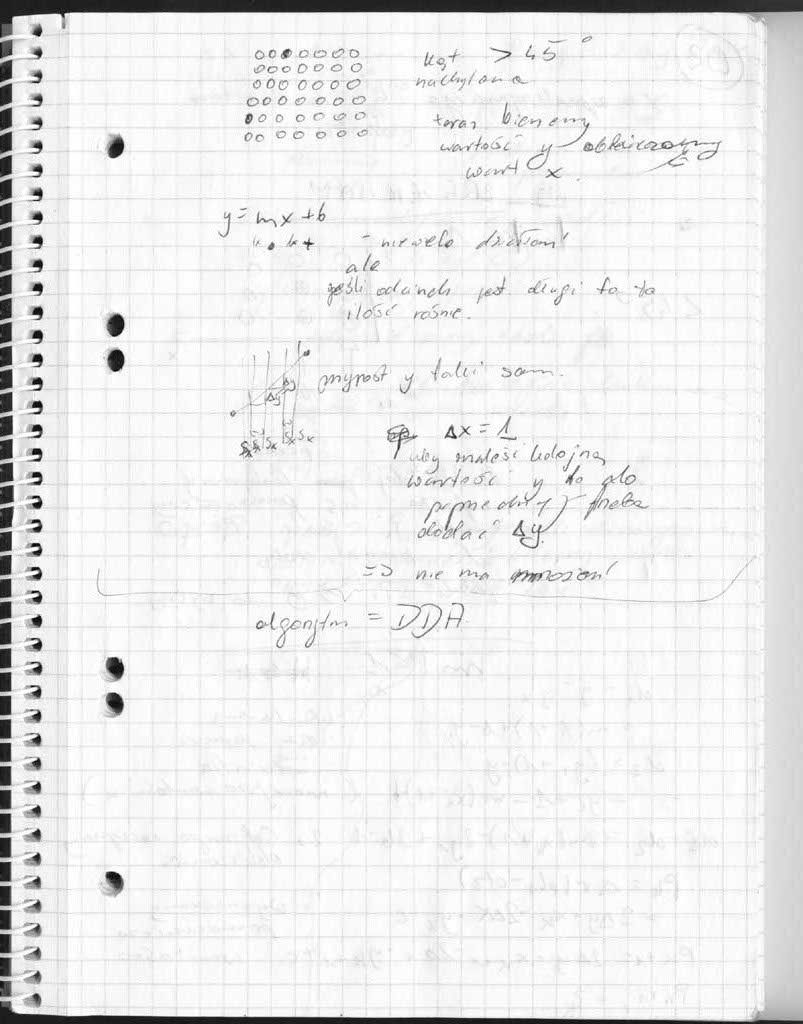 kąt > 45°
nachylenia
teraz bierzemy
wartość y obliczamy
wart x.
y = mx + b
- niewiele działań!
ale
jeśli odcinek jest długi to ta
ilość rośnie.
przyrost y taki sam.
Δy
Δy
Sx Sx Sx Sx Sx
Δx = 1
aby znaleść kolejną
wartość y to do
poprzedniej trzeba
dodać Δy.
=> nie ma mnożeń!
algorytm = DDA.